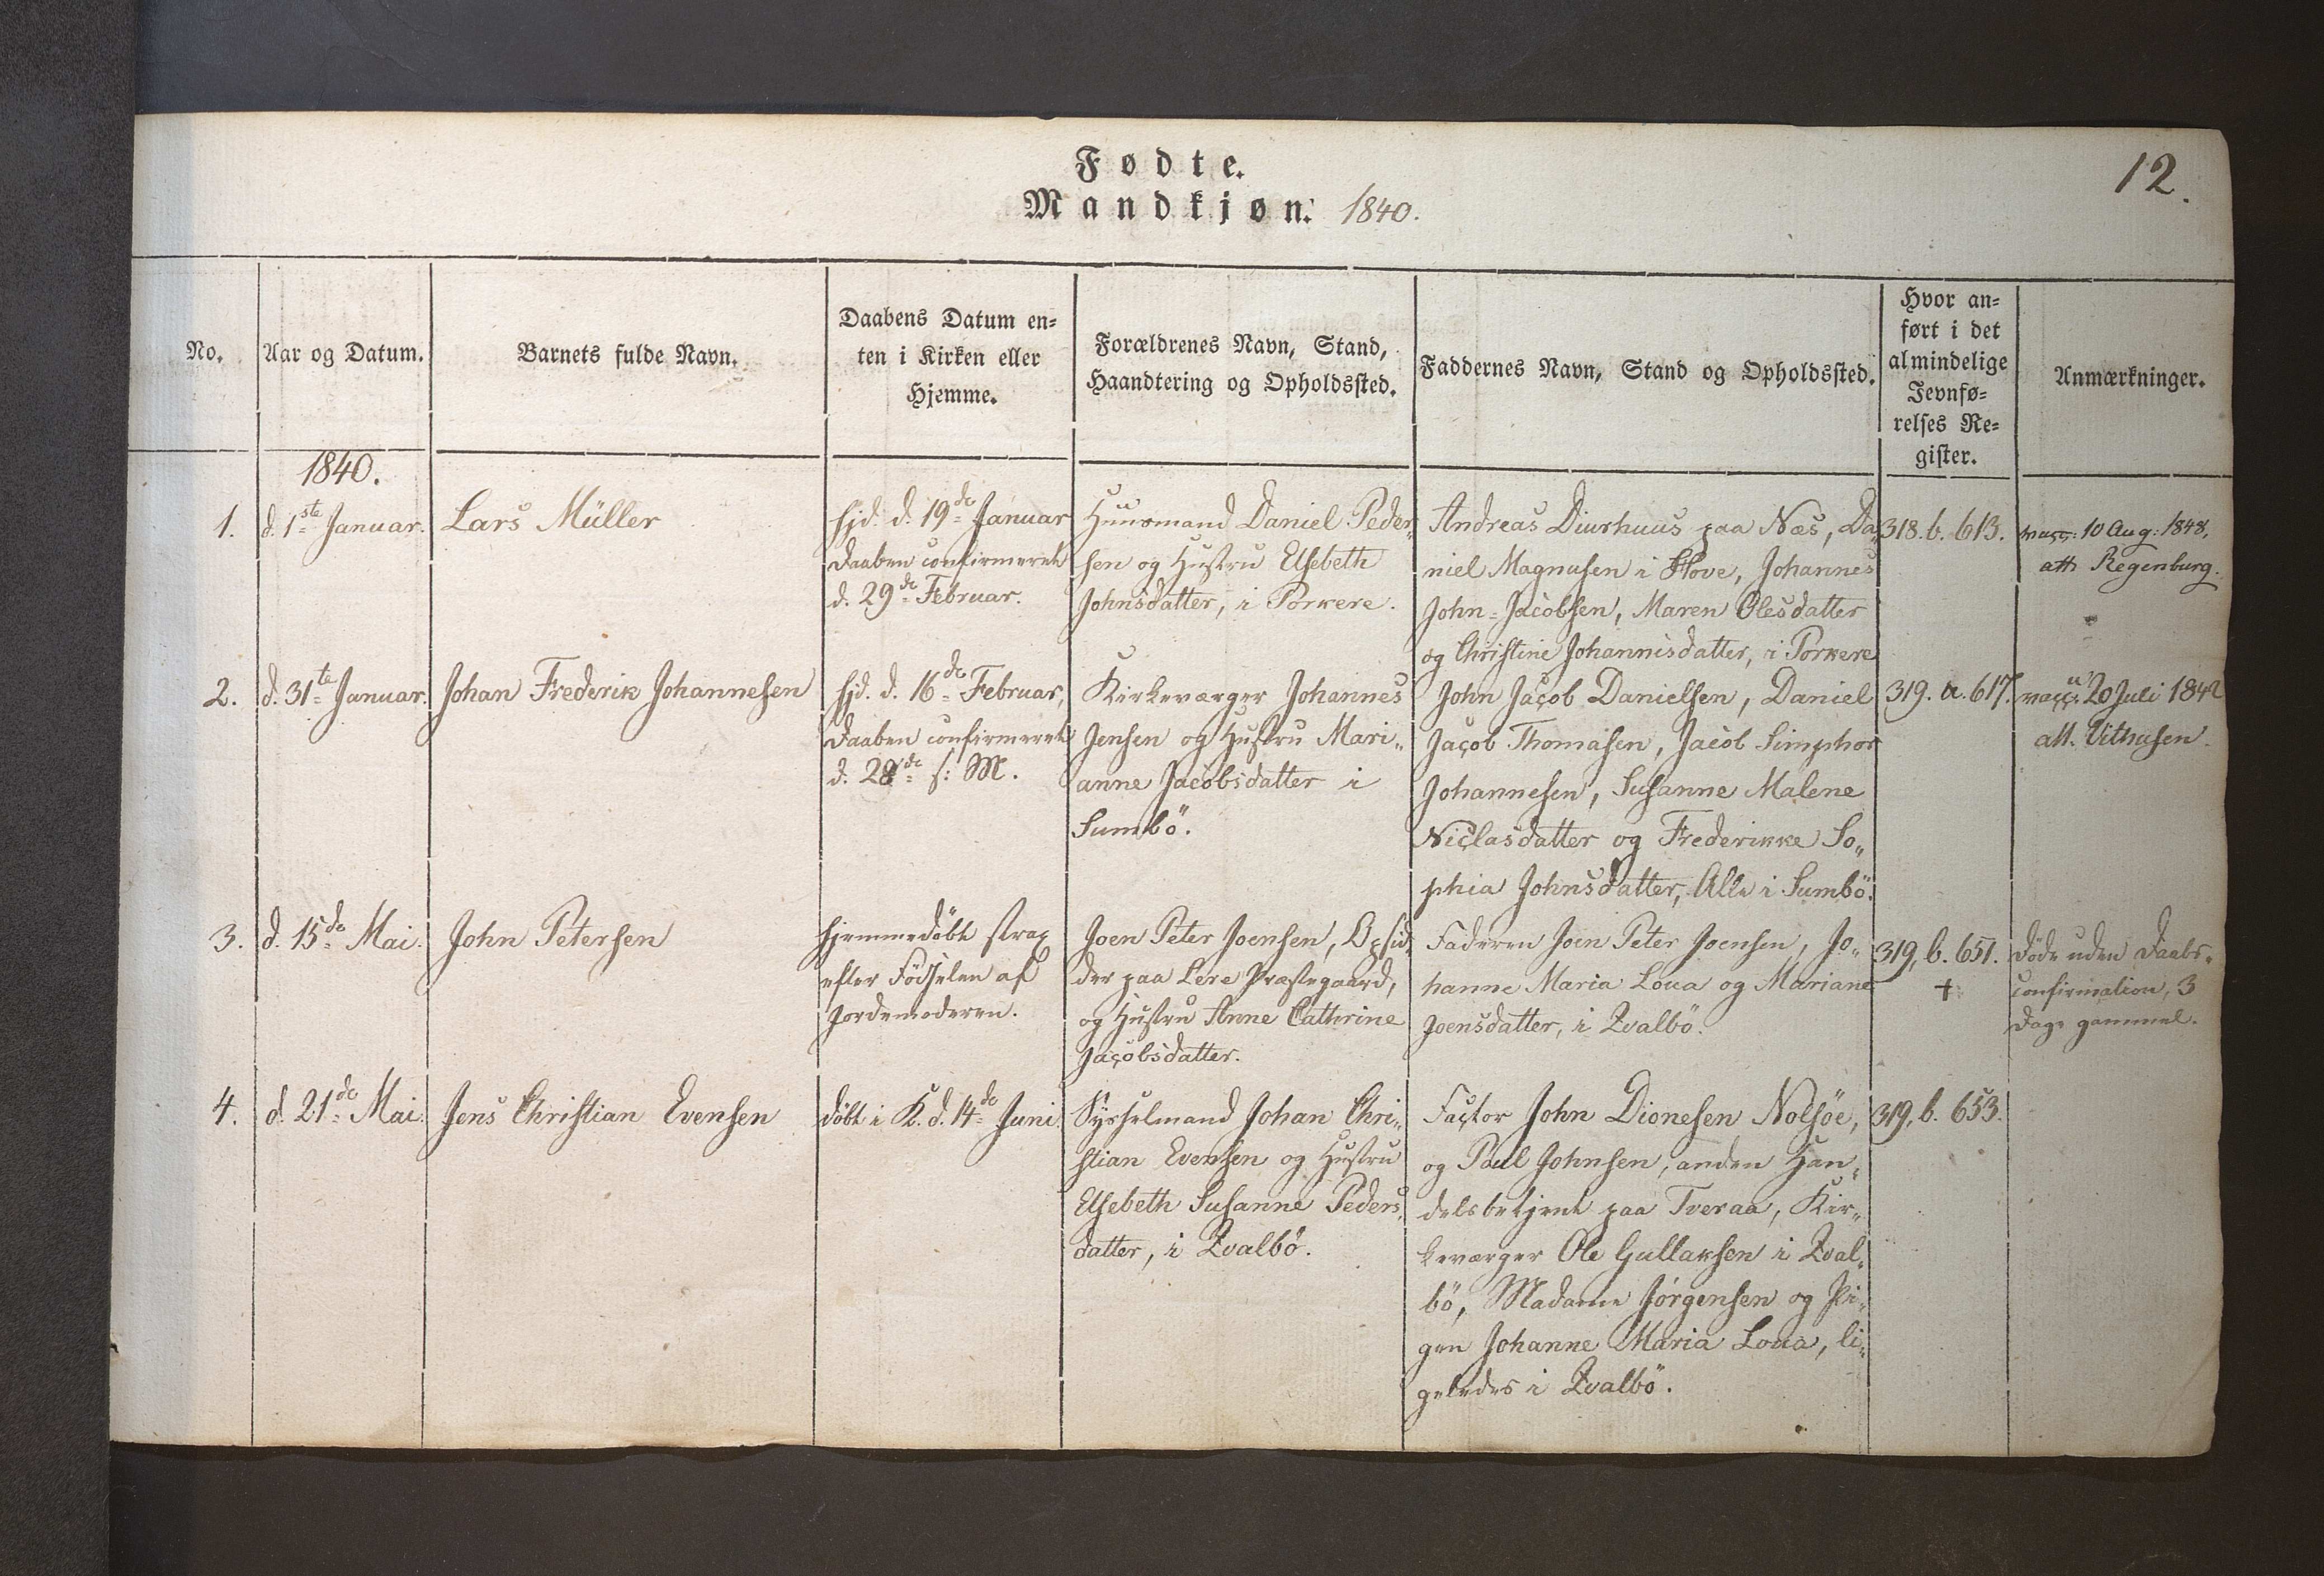 Fødte.
12.
Mandkjøn. 1840.
No.
Aar og Datum.
Barnets fulde Navn.
Daabens Datum en-
ten i Kirken eller
Hjemme.
Forældrenes Navn, Stand,
Haandtering og Opholdssted.
Faddernes Navn, Stand og Opholdssted.
Hvor an-
ført i det
almindelige
Jevnfø-
relses Re-
gister.
Anmærkninger.
1840.
1.
d. 1ste Januar.
Lars Müller
hjd. d. 19de Januar
Daaben confirmeret
d. 29de Februar.
Huusmand Daniel Peder-
sen og Hustru Elsebeth
Johnsdatter, i Porkere.
Andreas Diurhuus paa Næs, Da-
niel Magnusen i Hove, Johannes
John-Jacobsen, Maren Olesdatter
og Christine Johannisdatter, i Porkere
318. b. 613.
vacc: 10 Aug: 1848.
att. Regenburg.
2.
d. 31te Januar.
Johan Frederik Johannesen
hjd. d. 16de Februar,
Daaben confirmeret
d. 28de s: M.
Kirkeværger Johannes
Jensen og Hustru Mari-
anne Jacobsdatter i
Sumbö.
John Jacob Danielsen, Daniel
Jacob Thomasen, Jacob Simphor
Johannesen, Susanne Malene
Niclasdatter og Frederikke So-
phia Johnsdatter, Alle i Sumbö.
319. a. 617.
vacc: 20 Juli 1842
att. Vithusen.
3.
d. 15de Mai.
John Petersen
hjemmedöbt strax
efter Födselen af
Jordemoderen.
Joen Peter Joensen, Opsid-
der paa Lere Præstegaard,
og Hustru Anne Cathrine
Jacobsdatter.
Faderen Joen Peter Joensen, Jo-
hanne Maria Loua og Mariane
Joensdatter, i Qvalbö.
319, b. 651.
+
Döde uden Daabs-
confirmation, 3
Dage gammel.
4.
d. 21de Mai.
Jens Christian Evensen
döbt i K. d. 14de Juni
Sysselmand Johan Chri-
stian Evensen og Hustru
Elsebeth Susanne Peders-
datter, i Qvalbö.
Factor John Dionesen Nolsöe,
og Poul Johnsen, anden Han-
delsbetjent paa Tveraa, Kir-
keværger Ole Gullaksen i Qval-
bö, Madame Jörgensen og Pi-
gen Johanne Maria Loua, li-
geledes i Qvalbö.
319, b. 653.